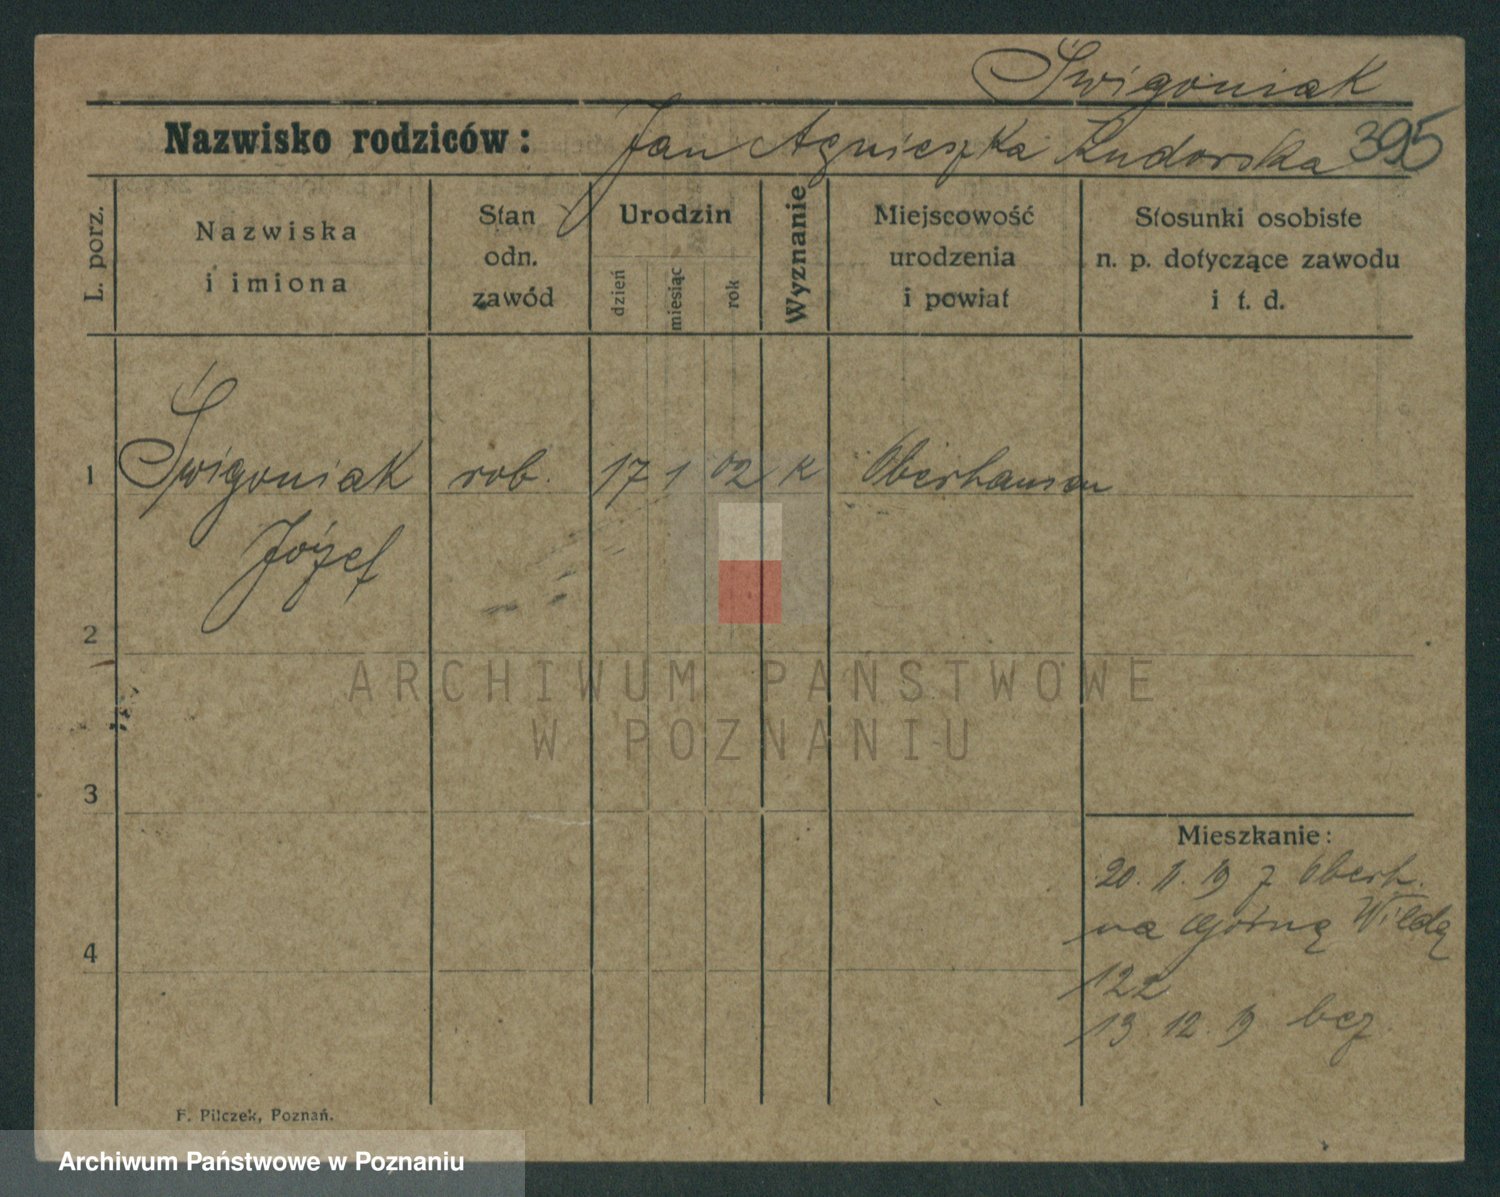 Świgoniak
Nazwisko rodziców: Jan Agnieszka Kudorska 395
L. porz.
Nazwiska
i imiona
Stan
odn.
zawód
Urodzin
dzień
miesiąc
rok
Wyznanie
Miejscowość
urodzenia
i powiat
Stosunki osobiste
n. p. dotyczące zawodu
i t. d.
1 Świgoniak rob. 17 1 02 k Oberhausen
Józef
2
3
4
Mieszkanie:
20. 11. 19 z Oberh.
na Górną Wildą
122
13. 12. 19 bez
F. Pilczek, Poznań.
ARCHIWUM PAŃSTWOWE
W POZNANIU
Archiwum Państwowe w Poznaniu